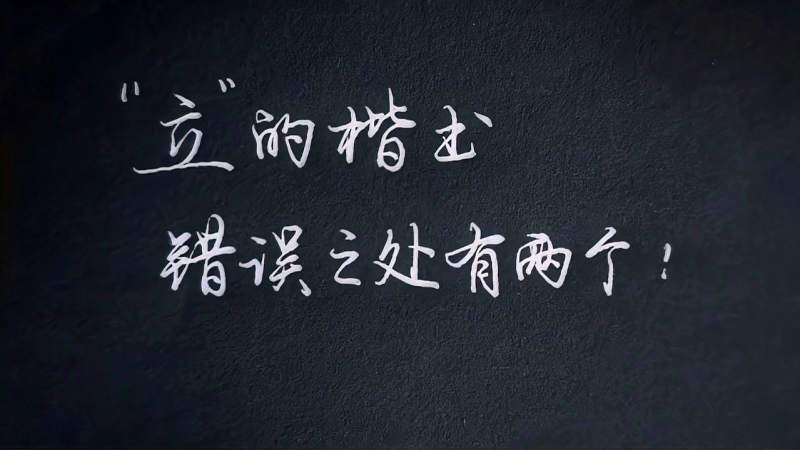 “立”的楷书
错误之处有两个！